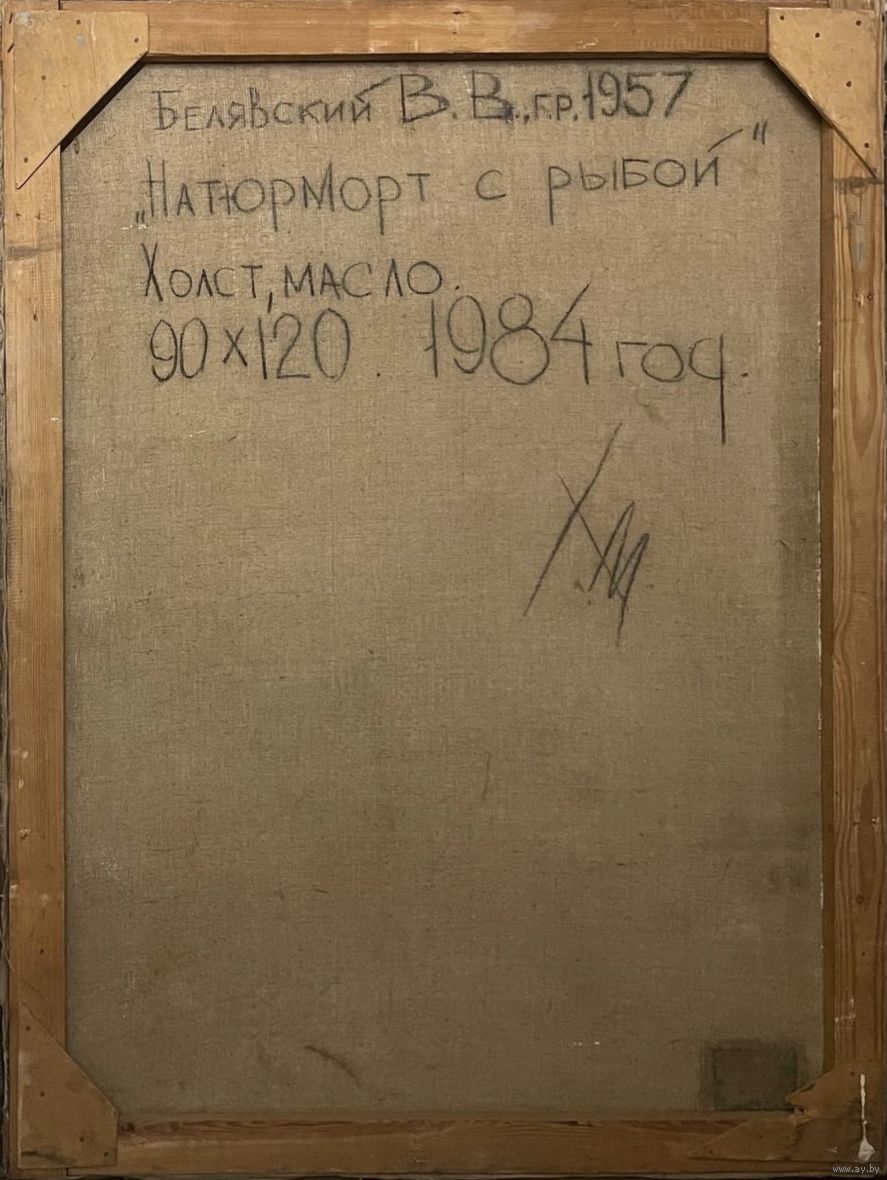 Белявский В.В., г.р. 1957
„Натюрморт с рыбой"
Холст, масло.
90х120. 1984 год.
www.ay.by